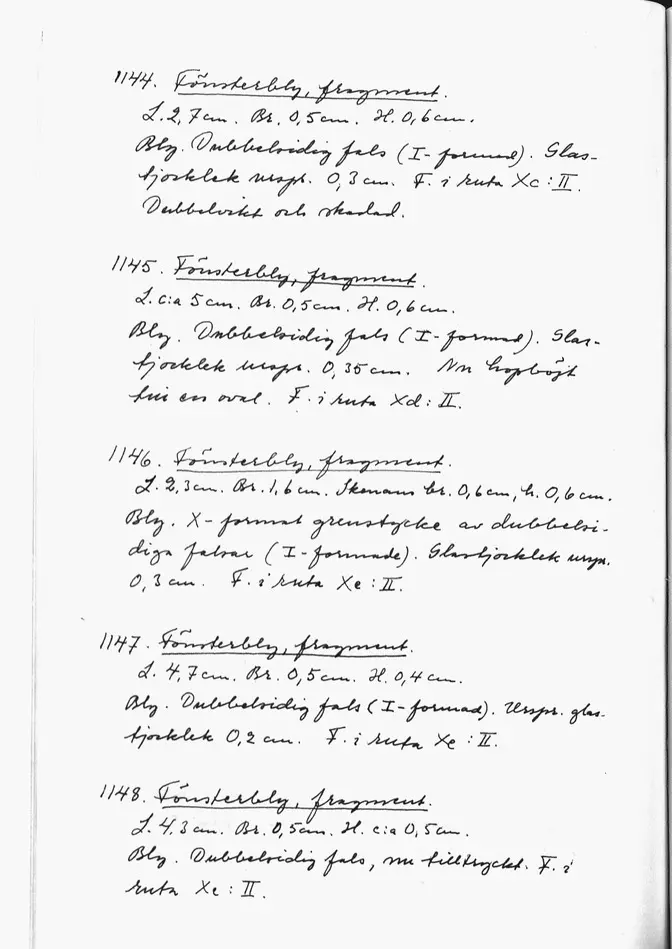 1144. Fönsterbly, fragment.
L. 2,7 cm. Br. 0,5 cm. H. 0,6 cm.
Bly. Dubbelsidig fals (I-formad). Glas-
tjocklek urspr. 0,3 cm. F. i ruta Xc : II.
Dubbelvikt och skadad.
1145. Fönsterbly, fragment.
L. c:a 5 cm. Br. 0,5 cm. H. 0,6 cm.
Bly. Dubbelsidig fals (I-formad). Glas-
tjocklek urspr. 0,35 cm. Nu hopböjt
till en oval. F. i ruta Xd : II.
1146. Fönsterbly, fragment.
L. 2,3 cm. Br. 1,6 cm. Skenans br. 0,6 cm, h. 0,6 cm.
Bly. X-format grenstycke av dubbelsi-
diga falsar (I-formade). Glastjocklek urspr.
0,3 cm. F. i ruta Xe : II.
1147. Fönsterbly, fragment.
L. 4,7 cm. Br. 0,5 cm. H. 0,4 cm.
Bly. Dubbelsidig fals (I-formad). Urspr. glas-
tjocklek 0,2 cm. F. i ruta Xe : II.
1148. Fönsterbly, fragment.
L. 4,3 cm. Br. 0,5 cm. H. c:a 0,5 cm.
Bly. Dubbelsidig fals, nu tilltryckt. F. i
ruta Xe : II.